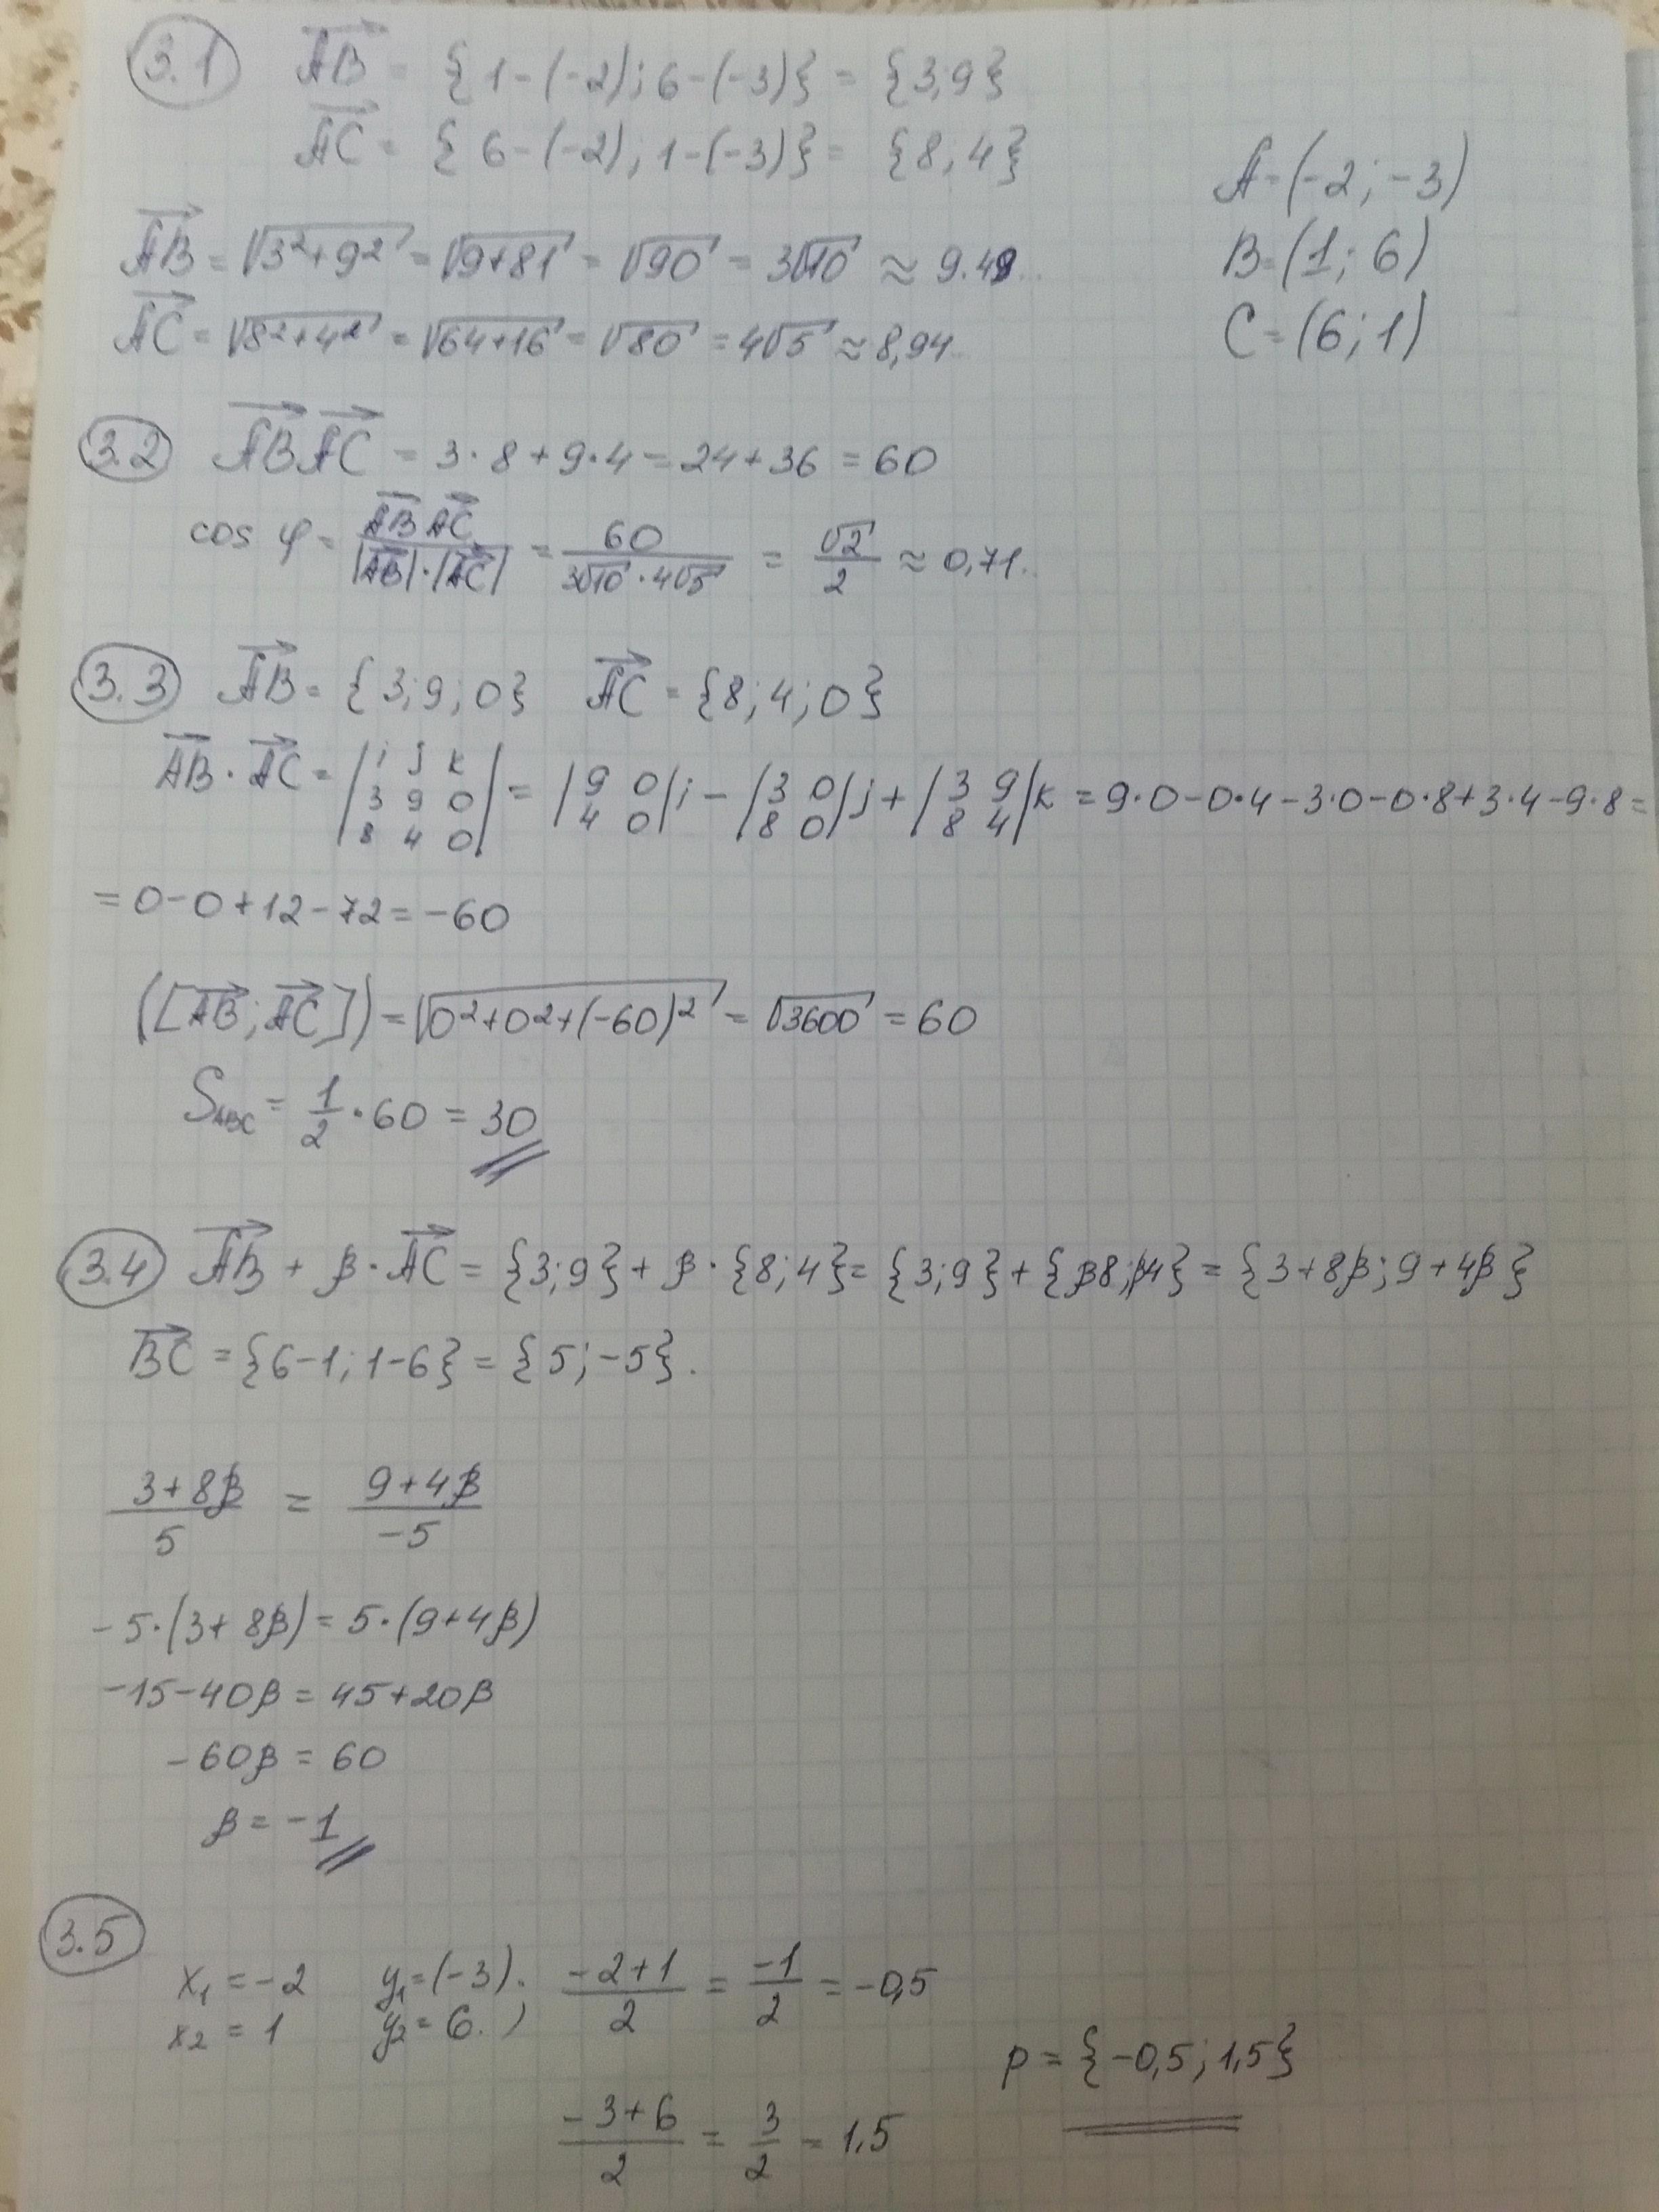 3.1 AB = {1-(-2); 6-(-3)} = {3;9}
AC = {6-(-2); 1-(-3)} = {8; 4}
A=(-2; -3)
B=(1; 6)
C=(6; 1)
AB = √3²+9² = √9+81 = √90 = 3√10 ≈ 9.49...
AC = √8²+4² = √64+16 = √80 = 4√5 ≈ 8,94...
3.2 AB AC = 3·8+9·4=24+36=60
cos φ = AB AC / |AB|·|AC| = 60 / 3√10·4√5 = √2 / 2 ≈ 0,71...
3.3 AB = {3; 9; 0} AC = {8; 4; 0}
AB · AC = |i j k; 3 9 0; 8 4 0| = |9 0; 4 0|i - |3 0; 8 0|j + |3 9; 8 4|k = 9·0-0·4-3·0-0·8+3·4-9·8=
=0-0+12-72=-60
([AB; AC]) = √0²+0²+(-60)² = √3600 = 60
S ABC = 1/2 · 60 = 30
3.4 AB + β·AC = {3;9} + β·{8;4} = {3;9} + {β8;β4} = {3+8β; 9+4β}
BC = {6-1; 1-6} = {5; -5}.
3+8β / 5 = 9+4β / -5
-5·(3+8β)=5·(9+4β)
-15-40β = 45+20β
-60β = 60
β = -1
3.5
x1 = -2 y1=(-3). -2+1 / 2 = -1 / 2 = -0,5
x2 = 1 y2 = 6.
p = {-0,5; 1,5}
-3+6 / 2 = 3 / 2 = 1.5